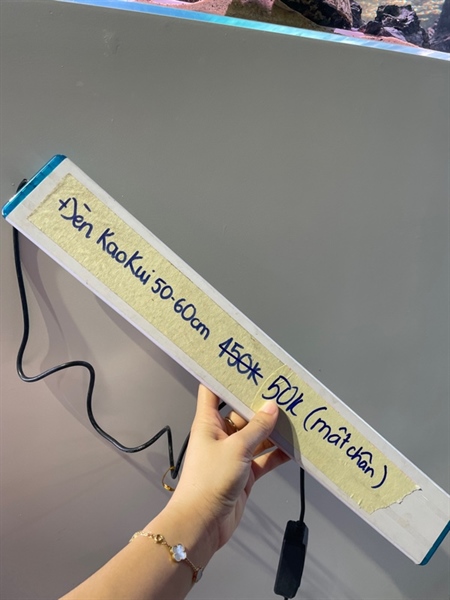 +Đèn KaoKui 50-60cm 450k 50k (mất chân)